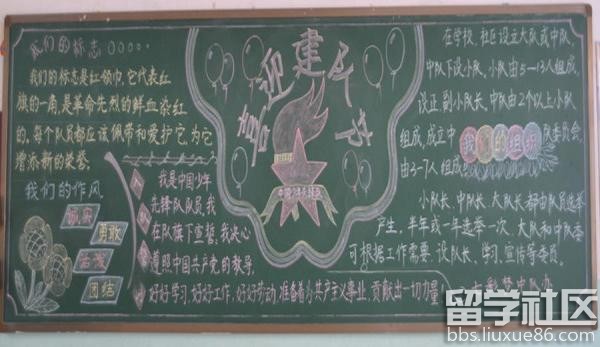 我们的标志
我们的标志是红领巾,它代表红
旗的一角,是革命先烈的鲜血染红
的,每个队员都应该佩带和爱护它,为它
增添新的荣誉。
我们的作风
诚实
勇敢
活泼
团结
喜迎建队节
我是中国少年
先锋队队员我
在队旗下宣誓,我决心
遵照中国共产党的教导,
好好学习,好好工作,好好劳动,准备着为共产主义事业,贡献出一切力量!
在学校、社区设立大队或中队,
中队下设小队。小队由5—13人组成,
设正副小队长。中队由2个以上小队
组成,成立中队委员会,
由3-7人组成
我们的组织
小队长、中队长、大队长都由队员选举
产生,半年或一年选举一次。大队和中队委
可根据工作需要设队长、学习、宣传等委员。
中队办
留学社区
bbs.liuxue86.com